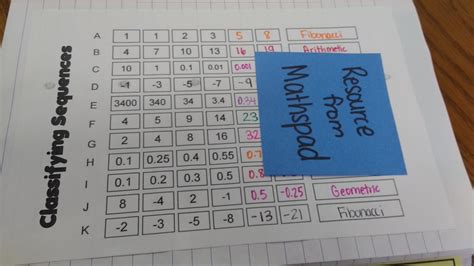 Classifying Sequences
A 1 1 2 3 5 8 Fibonacci
B 4 7 10 13 16 19 Arithmetic
C 10 1 0.1 0.01 0.001
D -1 -3 -5 -7 -9
E 3400 340 34 3.4 0.34
F 4 5 9 14 23
G 2 4 8 16 32
H 0.1 0.25 0.4 0.55
I 0.1 0.2 0.3 0.5
J 8 -4 2 -1 0.5 -0.25 Geometric
K -2 -3 -5 -8 -13 -21 Fibonacci
Resource
from
Mathspad